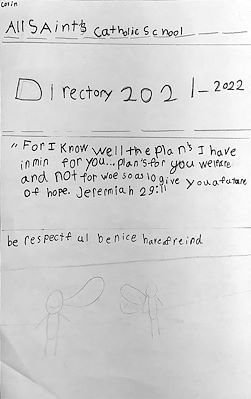 Colin
All SAint's Catholic School
Directory 2021-2022
"For I Know Well the plan's I have
in min for you... plan's for you welfare
and not for woe so as to give you a future
of hope. Jeremiah 29:11
be respectful be nice have freind